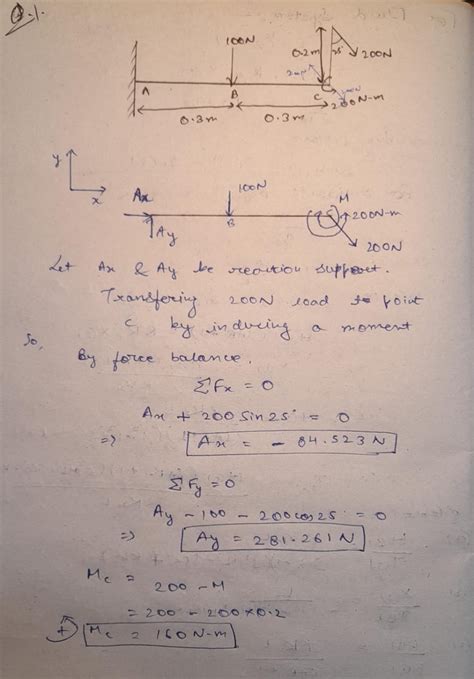 Q.1.
100N
0.2m
25°
200N
A
B
C
200N-m
0.3m
0.3m
y
x
Ax
Ay
100N
B
M
200N-m
200N
Let Ax & Ay be reaction support.
Transfering 200N load to point
C by inducing a moment
So,
By force balance.
ΣFx = 0
Ax + 200 Sin25° = 0
=> Ax = - 84.523 N
ΣFy = 0
Ay - 100 - 200cos25 = 0
=> Ay = 281.261 N
Mc = 200 - M
= 200 - 200×0.2
+ Mc = 160 N-m